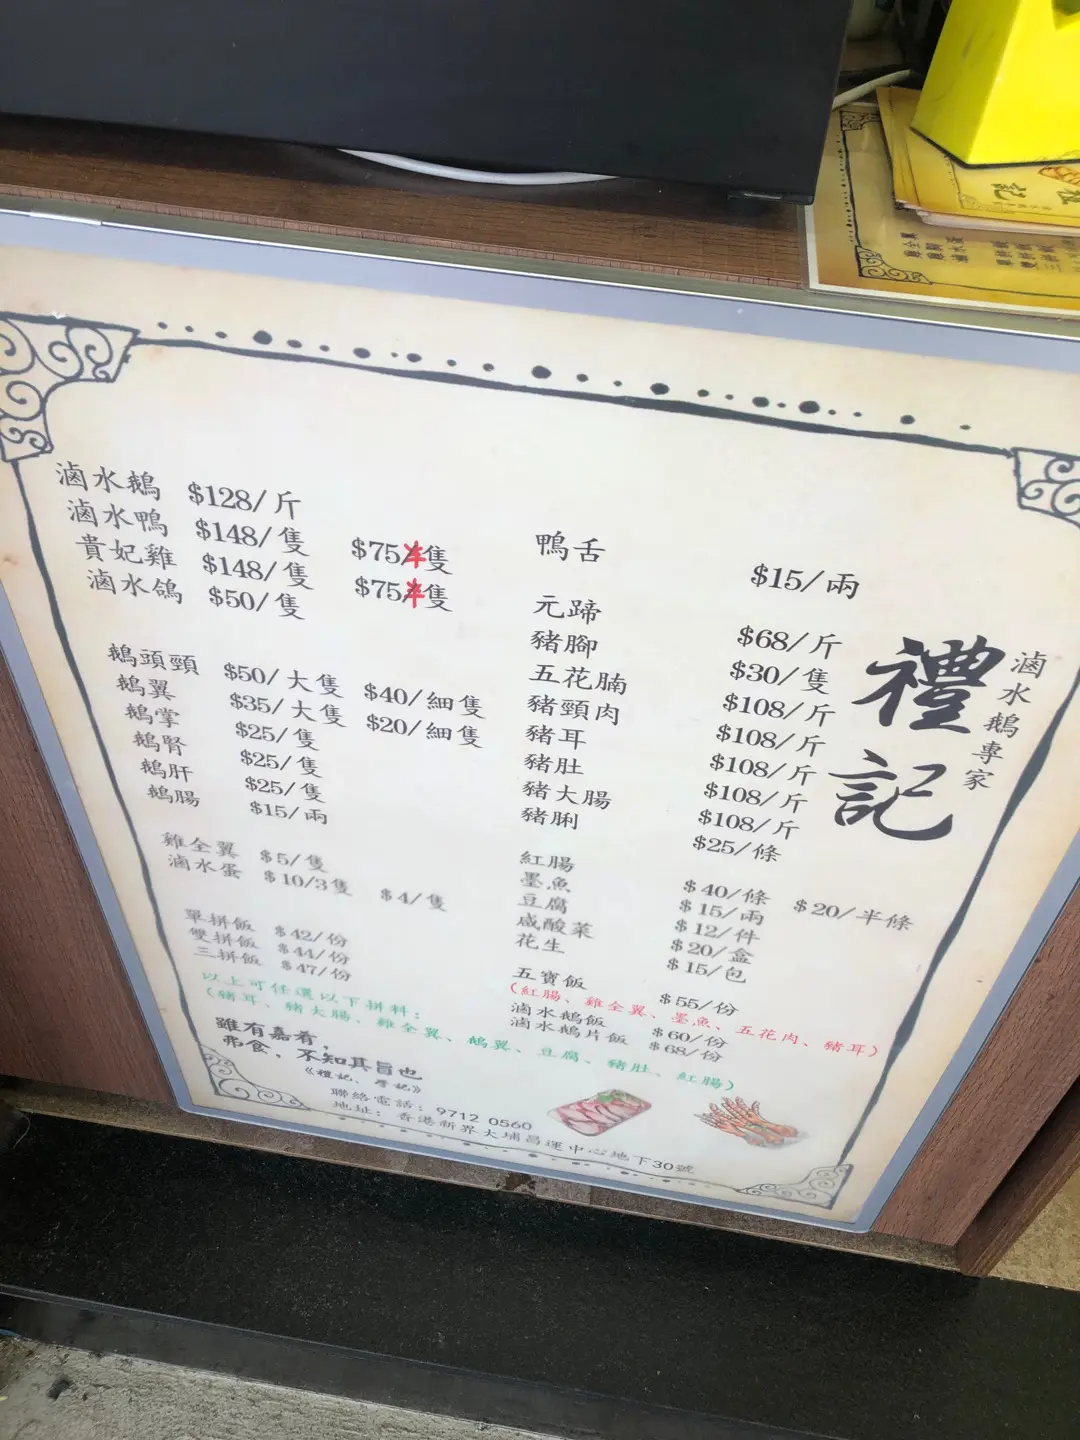 滷水鵝 $128/斤
滷水鴨 $148/隻 $75半隻
貴妃雞 $148/隻 $75半隻
滷水鴿 $50/隻
鵝頭頸 $50/大隻 $40/細隻
鵝翼 $35/大隻 $20/細隻
鵝掌 $25/隻
鵝腎 $25/隻
鵝肝 $25/隻
鵝腸 $15/兩
雞全翼 $5/隻
滷水蛋 $10/3隻 $4/隻
單拼飯 $42/份
雙拼飯 $44/份
三拼飯 $47/份
以上可任選以下拼料：
(豬耳、豬大腸、雞全翼、鵝翼、豆腐、豬肚、紅腸)
鴨舌 $15/兩
元蹄 $68/斤
豬腳 $30/隻
五花腩 $108/斤
豬頸肉 $108/斤
豬耳 $108/斤
豬肚 $108/斤
豬大腸 $108/斤
豬脷 $25/條
紅腸 $40/條 $20/半條
墨魚 $15/兩
豆腐 $12/件
咸酸菜 $20/盒
花生 $15/包
五寶飯 $55/份
(紅腸、雞全翼、墨魚、五花肉、豬耳)
滷水鵝飯 $60/份
滷水鵝片飯 $68/份
禮記
滷水鵝專家
雖有嘉肴，
弗食，不知其旨也
《禮記、學記》
聯絡電話：9712 0560
地址：香港新界大埔昌運中心地下30號
雞全翼
滷水蛋
記